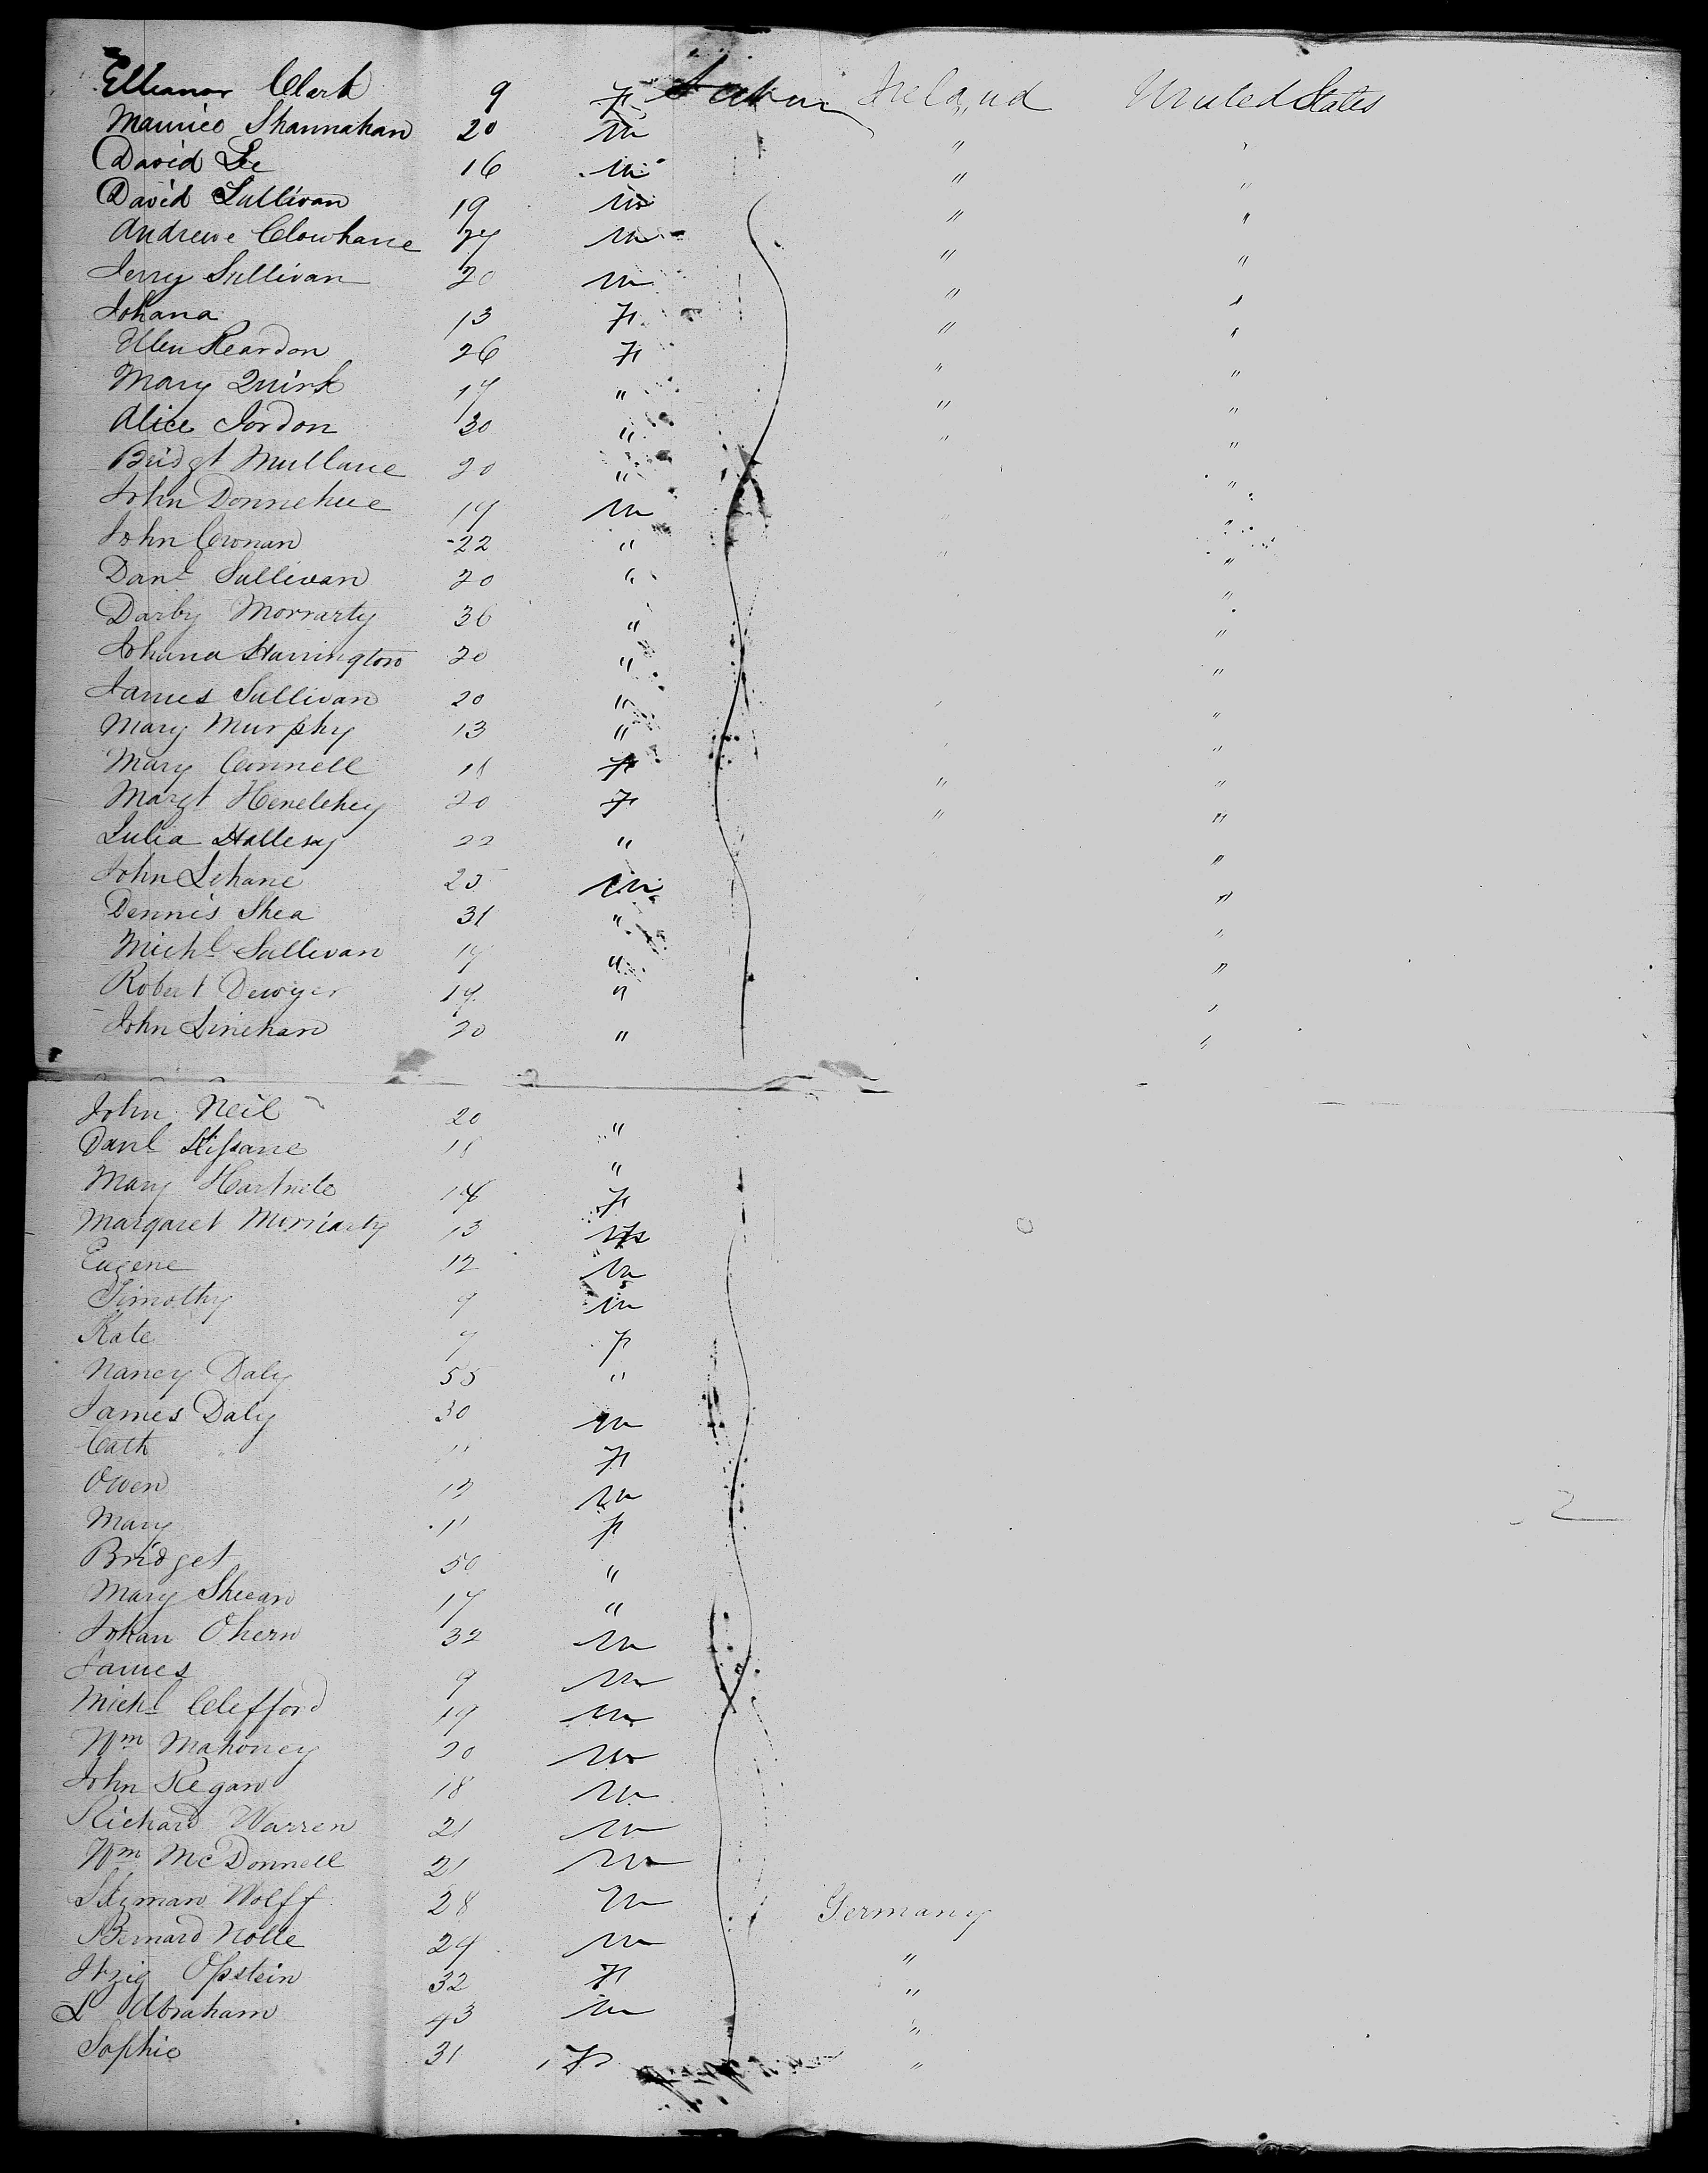 Elleanor Clark 9 F Ireland United States
Maurice Shannahan 20 m " "
David Lee 16 m " "
David Sullivan 19 m " "
Andrew Clowhane 27 m " "
Jerry Sullivan 20 m " "
Johana 13 F " "
Ellen Reardon 26 F " "
Mary Quirk 17 " " "
Alice Jordon 30 " " "
Bridgt Mullane 20 " "
John Donnehue 19 m "
John Cronan 22 " " "
Danl Sullivan 20 " "
Darby Morrarty 36 " "
Johana Harrington 20 " "
James Sullivan 20 " "
Mary Murphy 13 " "
Mary Connell 18 F " "
Margt Henelehey 20 F " "
Julia Hallesey 22 " "
John Lehane 25 m "
Dennis Shea 31 " "
Michl Sullivan 19 " "
Robert Dewyer 19 " "
John Linehan 20 " "
John Neil 20 "
Danl Kissane 18 "
Mary Hartnite 14 F
Margaret Morriarty 13 F
Eugene 12 m
Timothy 9 m
Kate 9 F
Nancy Daly 55 "
James Daly 30 m
Cath " 11 F
Owen 12 m
Mary 11 F
Bridget 50 "
Mary Sheean 17 "
Johan Ohern 32 m
James 9 m
Michl Clefford 19 m
Wm Mahoney 20 m
John Regan 18 m
Richard Warren 21 m
Wm McDonnell 21 m
Wolff 28 m Germany
Bernard Nolte 24 m "
Itzig Opstein 32 F "
L Abraham 43 m "
Sophie 31 F "